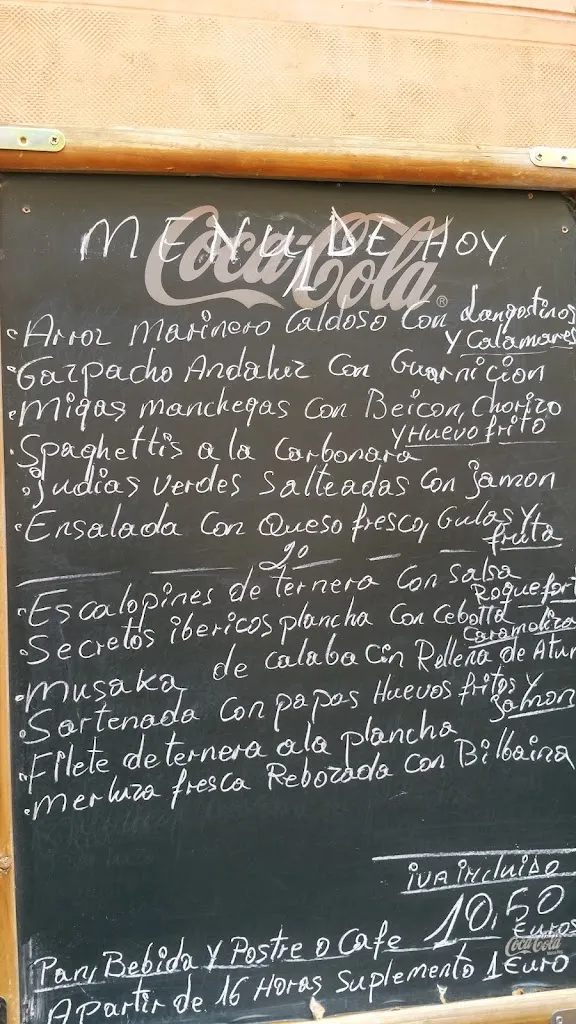 Coca-Cola ®
MENU DE HOY
1
Arroz marinero Caldoso Con Langostinos
y Calamares
Gazpacho Andaluz Con Guarnicion
Migas manchegas Con Beicon, Chorizo
y Huevo frito
Spaghettis a la Carbonara
Judias verdes Salteadas Con Jamon
Ensalada Con Queso fresco, Gulas Y
fruta
2º
Escalopines de ternera Con Salsa
Roquefort
Secretos ibericos plancha Con Cebolla
Caramoliza
Musaka de calabacin Rellena de Atun
Sartenada Con papas Huevos fritos Y
Jamon
Filete de ternera a la plancha
Merluza fresca Rebozada con Bilbaina
iva incluido
10,50
Euros
Coca-Cola
Pan, Bebida Y Postre o Cafe
A Partir de 16 Horas Suplemento 1 Euro